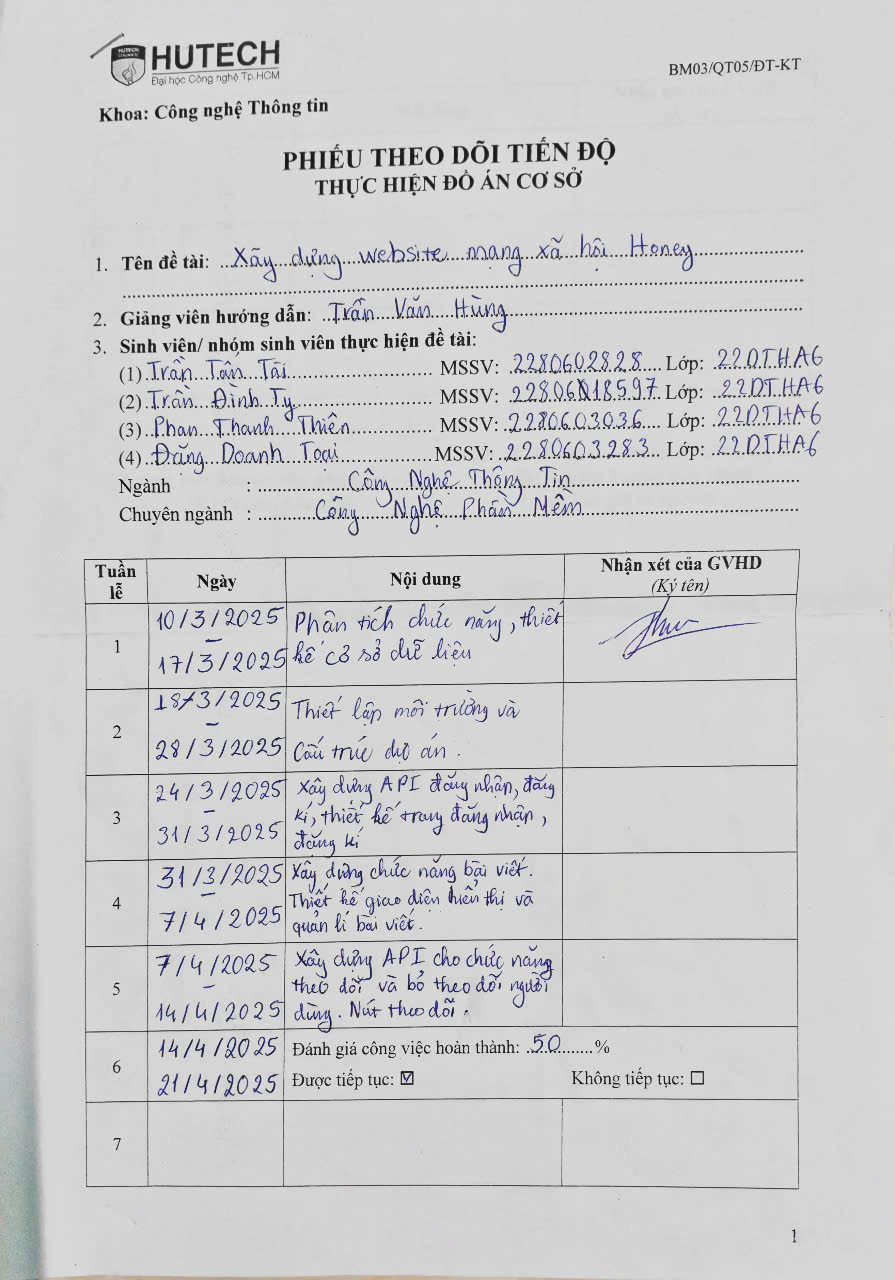 HUTECH
Đại học Công nghệ Tp.HCM
BM03/QT05/ĐT-KT
Khoa: Công nghệ Thông tin
PHIẾU THEO DÕI TIẾN ĐỘ
THỰC HIỆN ĐỒ ÁN CƠ SỞ
1. Tên đề tài: Xây dựng website mạng xã hội Honey
2. Giảng viên hướng dẫn: Trần Văn Hùng
3. Sinh viên/ nhóm sinh viên thực hiện đề tài:
(1) Trần Tấn Tài MSSV: 2280602828 Lớp: 22DTHA6
(2) Trần Đình Ty MSSV: Lớp: 22DTHA6
(3) Phan Thanh Thiên MSSV: 2280603036 Lớp: 22DTHA6
(4) Đặng Doanh Toại MSSV: 2280603283 Lớp: 22DTHA6
Ngành : Công Nghệ Thông Tin
Chuyên ngành : Công Nghệ Phần Mềm
Tuần lễ Ngày Nội dung Nhận xét của GVHD
(Ký tên)
1
10/3/2025
–
17/3/2025
Phân tích chức năng, thiết
kế cơ sở dữ liệu
2
18/3/2025
–
28/3/2025
Thiết lập môi trường và
Cấu trúc dự án.
3
24/3/2025
–
31/3/2025
Xây dựng API đăng nhập, đăng
kí, thiết kế trang đăng nhập,
đăng kí
4
31/3/2025
–
7/4/2025
Xây dựng chức năng bài viết.
Thiết kế giao diện hiển thị và
quản lí bài viết.
5
7/4/2025
–
14/4/2025
Xây dựng API cho chức năng
theo dõi và bỏ theo dõi người
dùng. Nút theo dõi.
6
14/4/2025
21/4/2025
Đánh giá công việc hoàn thành: 50 %
Được tiếp tục: ☑ Không tiếp tục: ☐
7
1